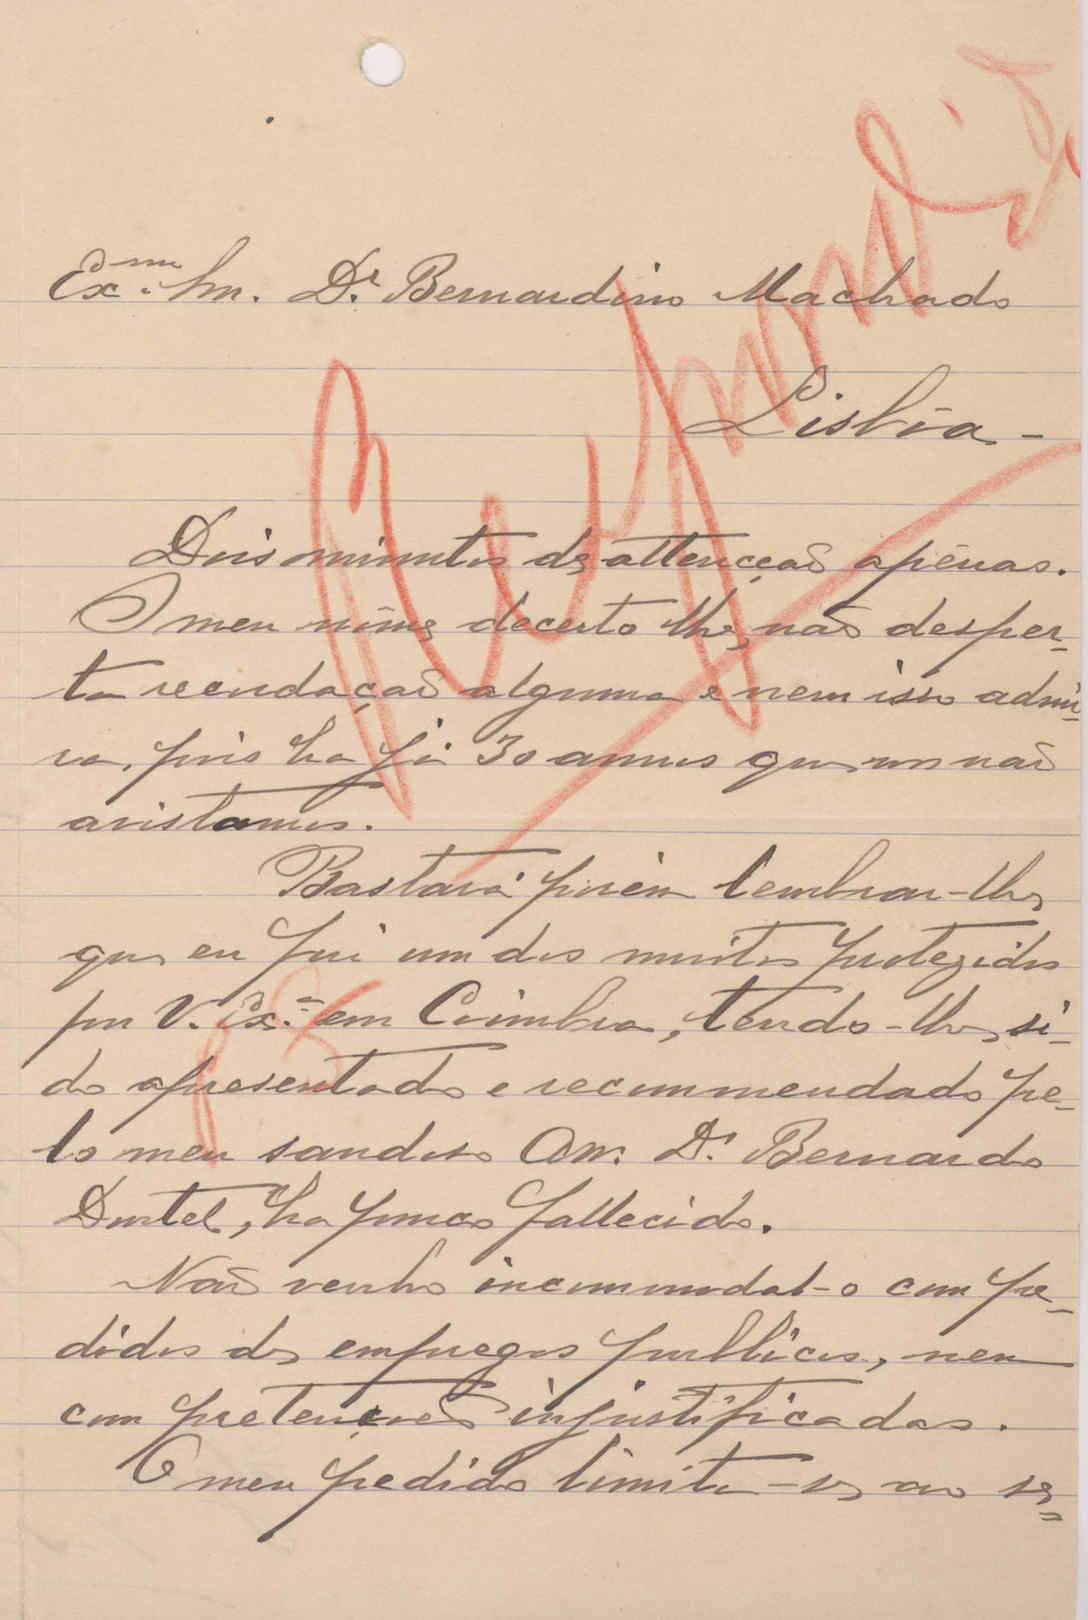 Exmo. Snr. Dr. Bernardino Machado
Lisbôa -
Respondida
Dois minutos de attenção apênas.
O meu nôme decerto lhe não desper-
ta recordação alguma e nem isso admi-
ra, pois ha já 30 annos que nos não
avistamos.
Bastará porém lembrar-lhe
que eu fui um dos muitos protegidos
por V. Ex.ª em Coimbra, tendo-lhe si-
do apresentado e recommendado pe-
lo meu saudoso Am.º Dr. Bernardo
ha pouco fallecido.
Não venho incommodal-o com pe-
didos de empregos publicos, nem
com pretenções injustificadas.
O meu pedido limita-se ao se-